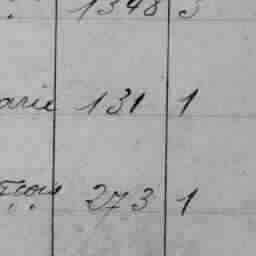 1348 3
arie 131 1
273 1